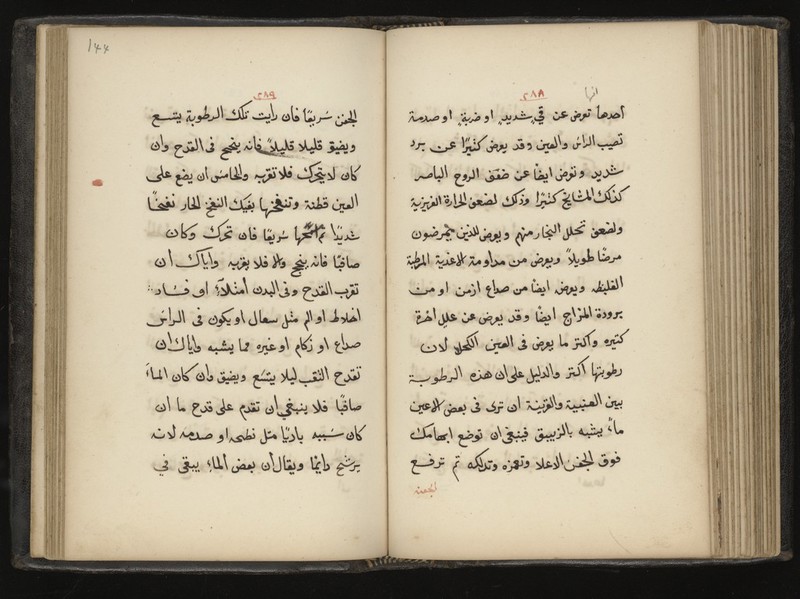 ٢٨٨
احدها تعرض عن قيء شديد او ضربة او صدمة
تصيب الراس والعين وقد يعرض كثيرا عن برد
شديد وتعرض ايضا عن ضعف الروح الباصر
كذلك المشايخ كثيرا وذلك لضعف الحارة الغريزية
ولضعف تحلل البخار منهم ويعرض للذين يمرضون
مرضا طويلا ويعرض من مداومة الاغذية المرطبة
الغليظه ويعرض ايضا من صداع ازمن او من
برودة المزاج ايضا وقد يعرض عن علل اخرة
كثيره واكثر ما يعرض في العين الكحلا لان
رطوبتها اكثر والدليل على ان هذه الرطوبة
بين العنبية والقرنية ان ترى في بعض الاعين
ماء يشبه بالزيبق فينبغي ان توضع ابهامك
فوق الجفن الاعلا وتغمزه وتدلكه ثم ترفع
الجفن
١٤٤
٢٨٩
الجفن سريعا فان رايت تلك الرطوبة يتسع
ويضيق قليلا قليلا فانه ينجح في القدح وان
كان لا يتحرك فلا تقربه والخامس ان يضع على
العين قطنة وتنفخها بفيك النفخ الحار نفخا
شديدا ثم سريعا فان تحرك وكان
صافيا فانه ينجح والا فلا يقربه واياك ان
تقرب القدح وفي البدن امتلاء او فساد
اخلاط او الم مثل سعال او يكون في الراس
صداع او زكام او غيره مما يشبه واياك ان
تقدح الثقب ليلا يتسع ويضيق وان كان الماء
صافيا فلا ينبغي ان تقدم على قدح ما ان
كان سببه باديا مثل نطحه او صدمه لانه
يرشح دايما ويقال ان بعض الماء يبقى في